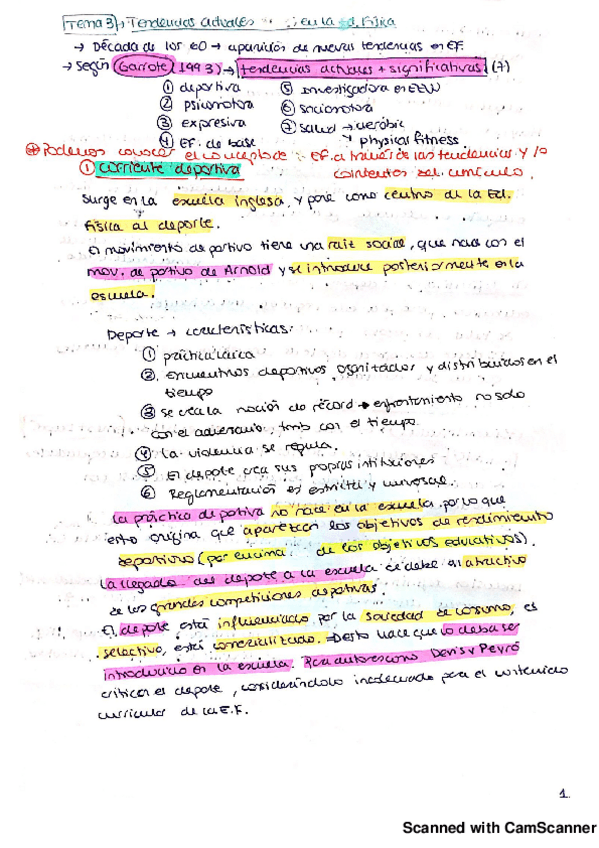 Tema 3. Tendencias actuales en la Ed. Física
→ Década de los 60 → aparición de nuevas tendencias en EF.
→ Según Garrote (1993) → tendencias actuales + significativas (7)
① deportiva ⑤ investigadora en EEUU
② psicomotora ⑥ sociomotora
③ expresiva ⑦ salud → aeróbic
④ EF. de base ↘ physical fitness.
Podemos conocer el concepto de EF. a través de las tendencias y los
① corriente deportiva contenidos del currículo.
Surge en la escuela inglesa, y pone como centro de la Ed.
física al deporte.
El movimiento deportivo tiene una raíz social, que nace con el
mov. deportivo de Arnold y se introduce posteriormente en la
escuela.
Deporte → características:
① práctica laica
② encuentros deportivos organizados y distribuidos en el
tiempo
③ se crea la noción de récord → enfrentamiento no solo
con el adversario, tmb con el tiempo.
④ La violencia se regula.
⑤ El deporte crea sus propias instituciones
⑥ Reglamentación es estricta y universal.
La práctica deportiva no nace en la escuela, por lo que
esto origina que aparezcan los objetivos de rendimiento
deportivo (por encima de los objetivos educativos).
La llegada del deporte a la escuela se debe al atractivo
de las grandes competiciones deportivas.
El deporte está influenciado por la sociedad de consumo, es
selectivo, está comercializado. → Esto hace que no deba ser
introducido en la escuela. Para autores como Denis y Peyró
critican el deporte, considerándolo inadecuado para el contenido
curricular de la E.F.
1.
Scanned with CamScanner